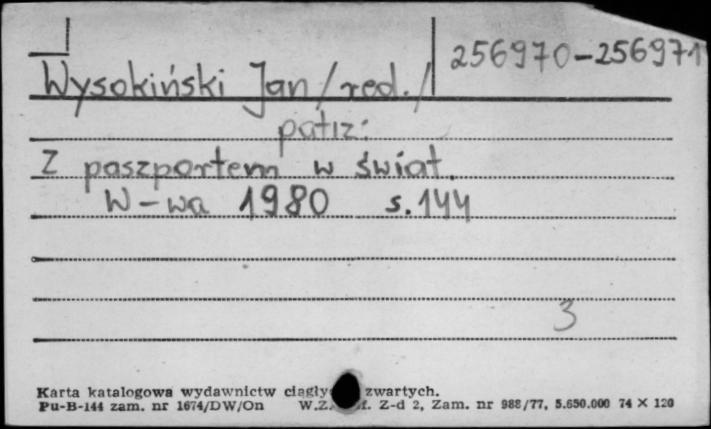 256970-256971
Wysokiński Jan /red./
patrz:
Z paszportem w świat.
W-wa 1980 s.144
3
Karta katalogowa wydawnictw zwartych.
Pu-B-144 zam. nr 1674/DW/On W.Z. Z-d 2, Zam. nr 988/77, 5.650.000 74 X 120